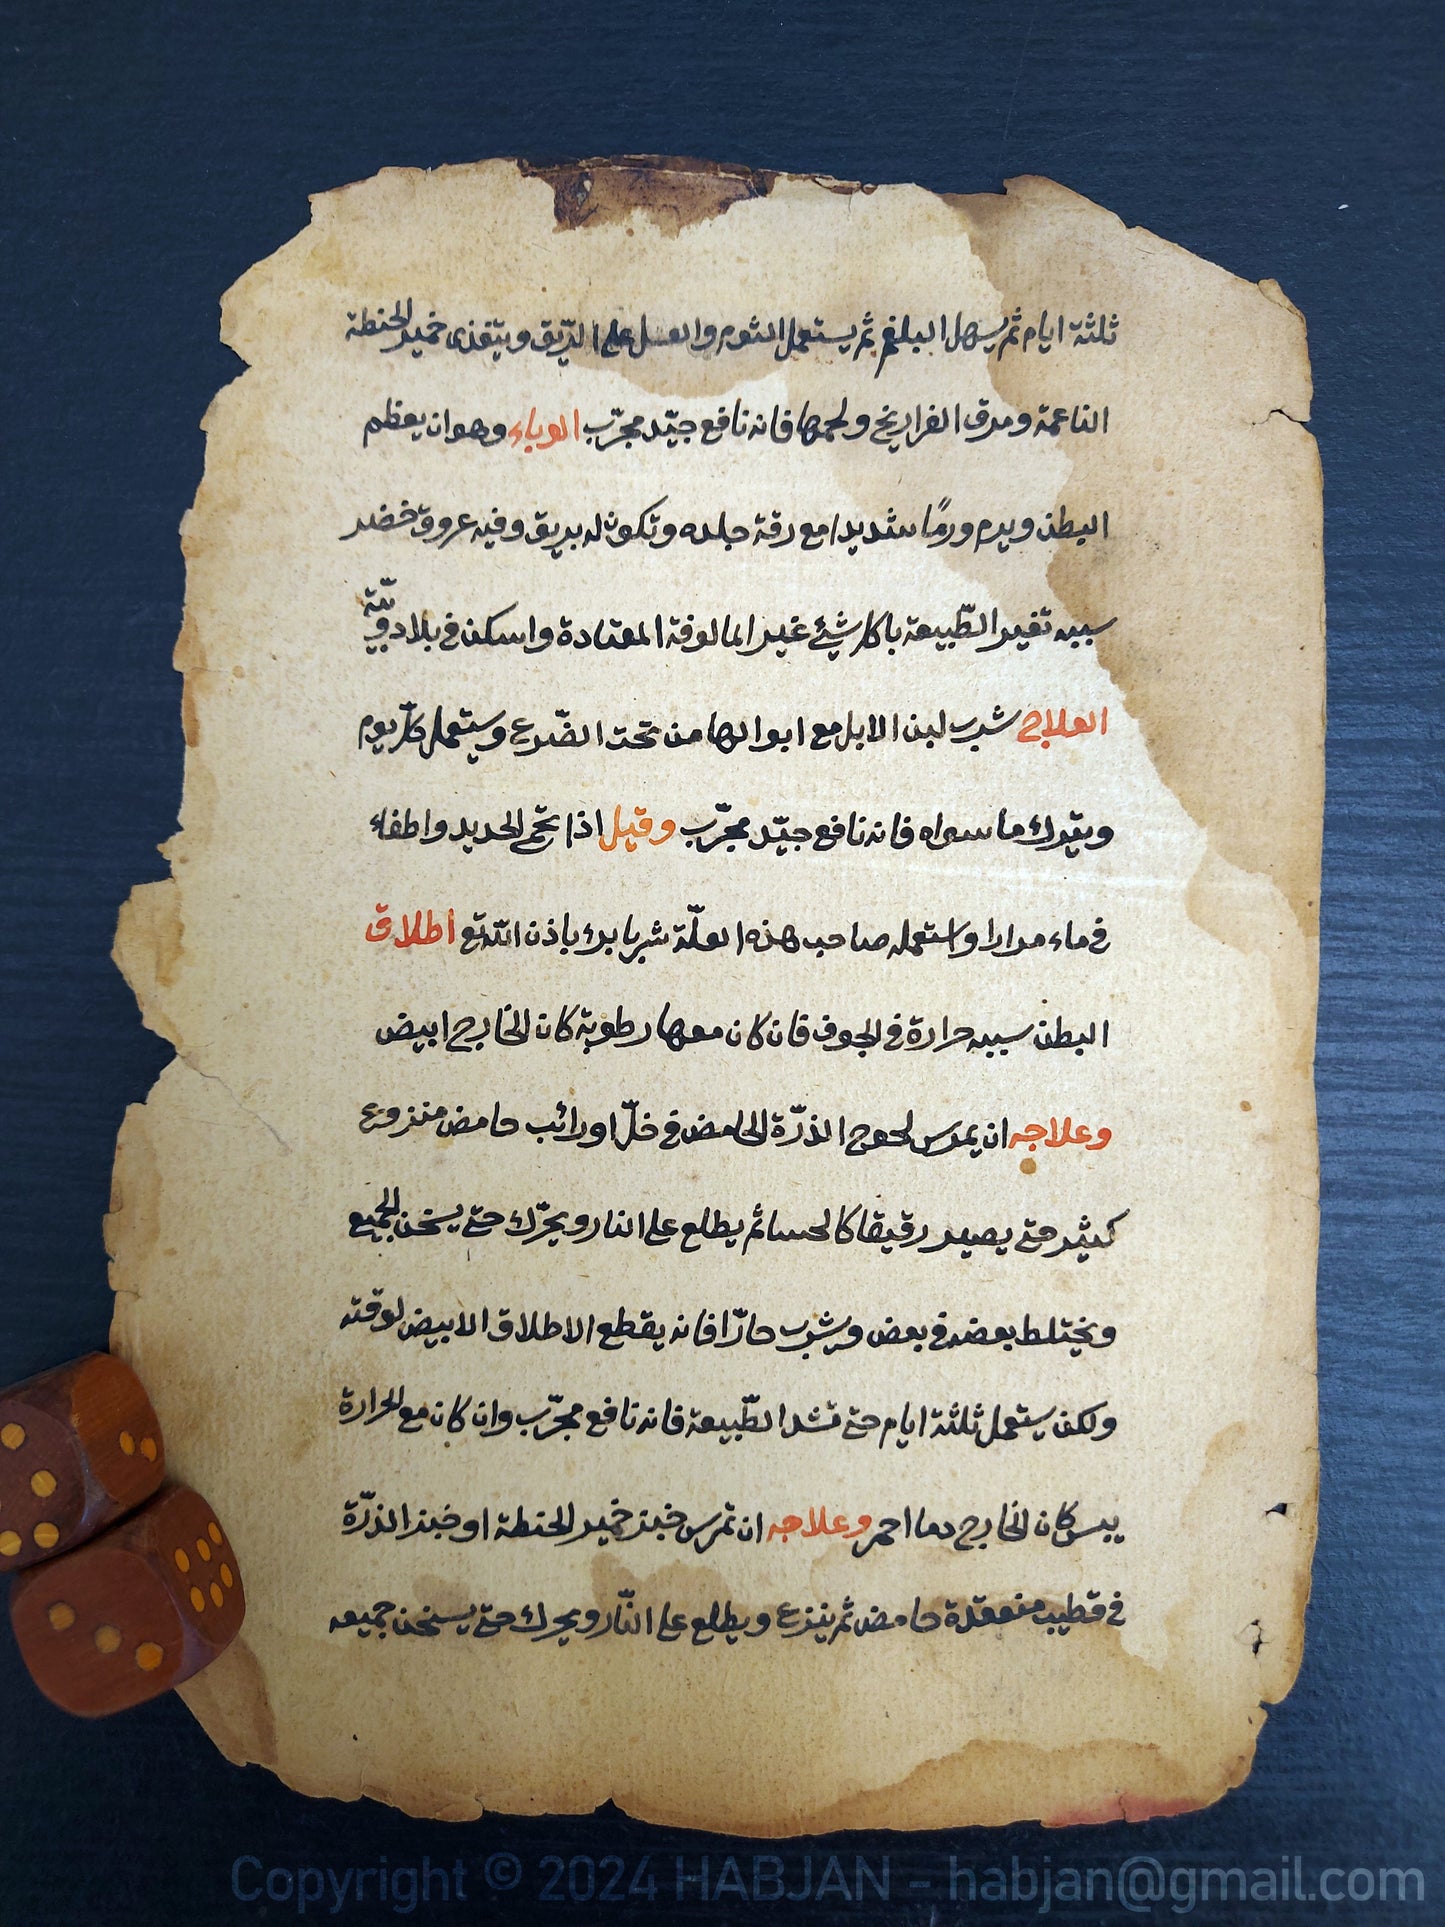 ثلثة ايام ثم يسهل البلغم ثم يستعمل الثوم والعسل على الريق ويتغذى خمير الحنطة
الناعمة ومرق الفراريخ ولحمها فانه نافع جيّد مجرّب الوباء وهو ان يعظم
البطن ويرم ورمًا شديدا مع رقة جلده وتكون له بريق وفيه عروق خضر
سببه تغير الطّبيعة باكل شيئ غير المالوفة المعتادة واسكن في بلاد وبيّة
العلاج شرب لبن الابل مع ابوالها من تحت الضّرع ويستعمل كلّ يوم
ويترك ما سواه فانه نافع جيّد مجرّب وقيل اذا تحمى الحديد واطفاء
في ماء مرارا واستعمله صاحب هذه العلّة شربا برئ باذن اللّه تع اطلاق
البطن سببه حرارة في الجوف فان كان معها رطوبة كان الخارج ابيض
وعلاجه ان يمرس لحوح الذرّة الحامض في خلّ او رائب حامض منزوع
كثير حتى يصير رقيقا كالحسا ثم يطلع على النار ويحرّك حتى يسخن الجميع
ويختلط بعضه في بعض ويشرب حارّا فانه يقطع الاطلاق الابيض لوقته
ولكن يستعمل ثلثة ايام حتى تشد الطّبيعة فانه نافع مجرّب وان كان مع الحرارة
يبس كان الخارج دما احمر وعلاجه ان تمرس خبز خمير الحنطة او خبز الذرّة
في قطيب منعقدة حامض ثم ينزع ويطلع على النّار ويحرك حتى يسخن جميعه
Copyright © 2024 HABJAN - habjan@gmail.com